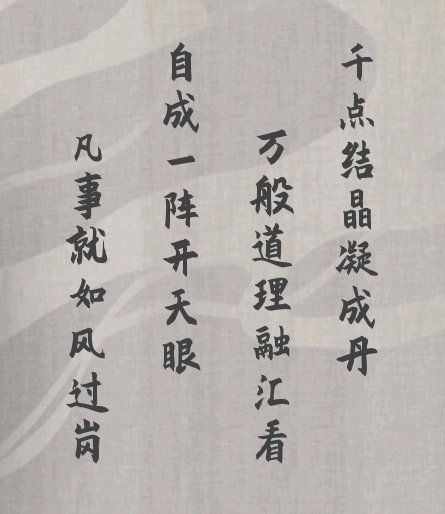 千点结晶凝成丹
万般道理融汇看
自成一阵开天眼
凡事就如风过岗